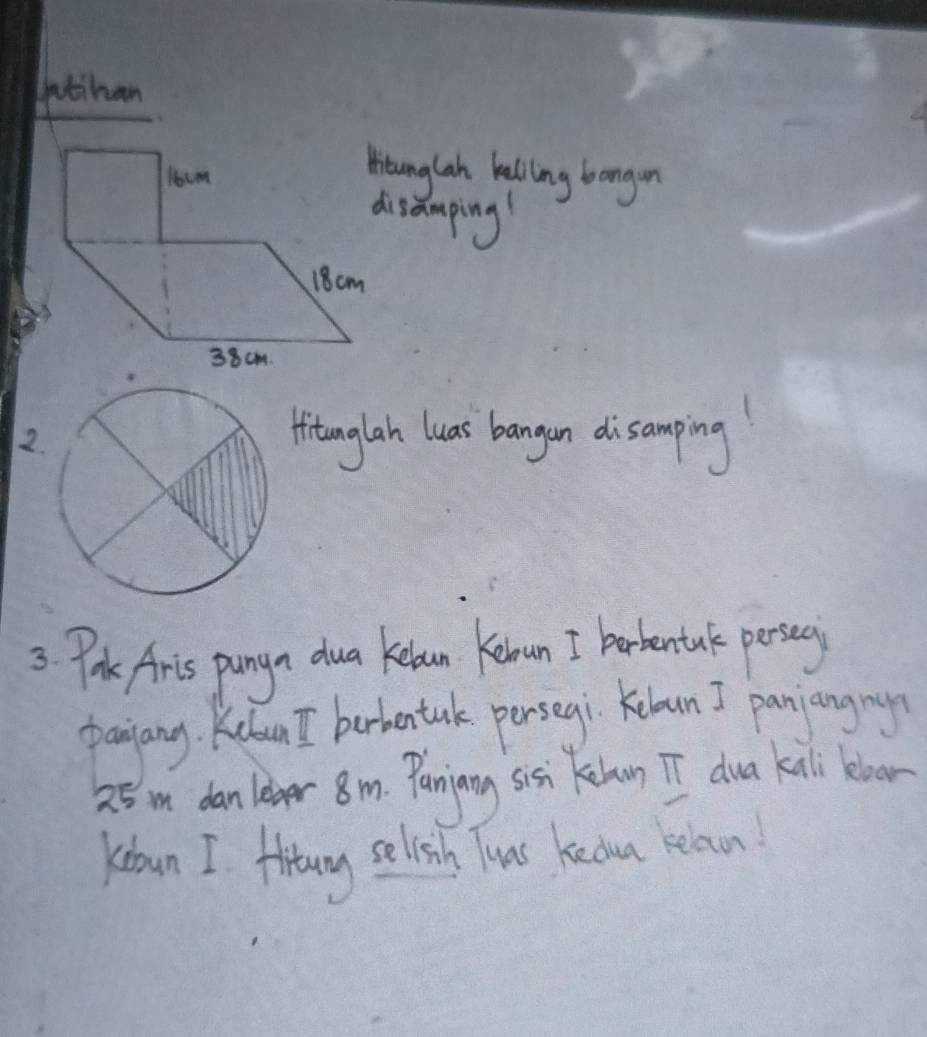 Latihan
16cm
Hitunglah keliling bangun
disamping!
18cm
38cm.
2.
Hitunglah luas bangun disamping!
3. Pak Aris punya dua kebun. Kebun I berbentuk persegi
panjang. Kebun II berbentuk persegi. Kebun I panjangnya
25 m dan lebar 8 m. Panjang sisi kebun II dua kali lebar
kebun I. Hitung selisih luas kedua kebun!